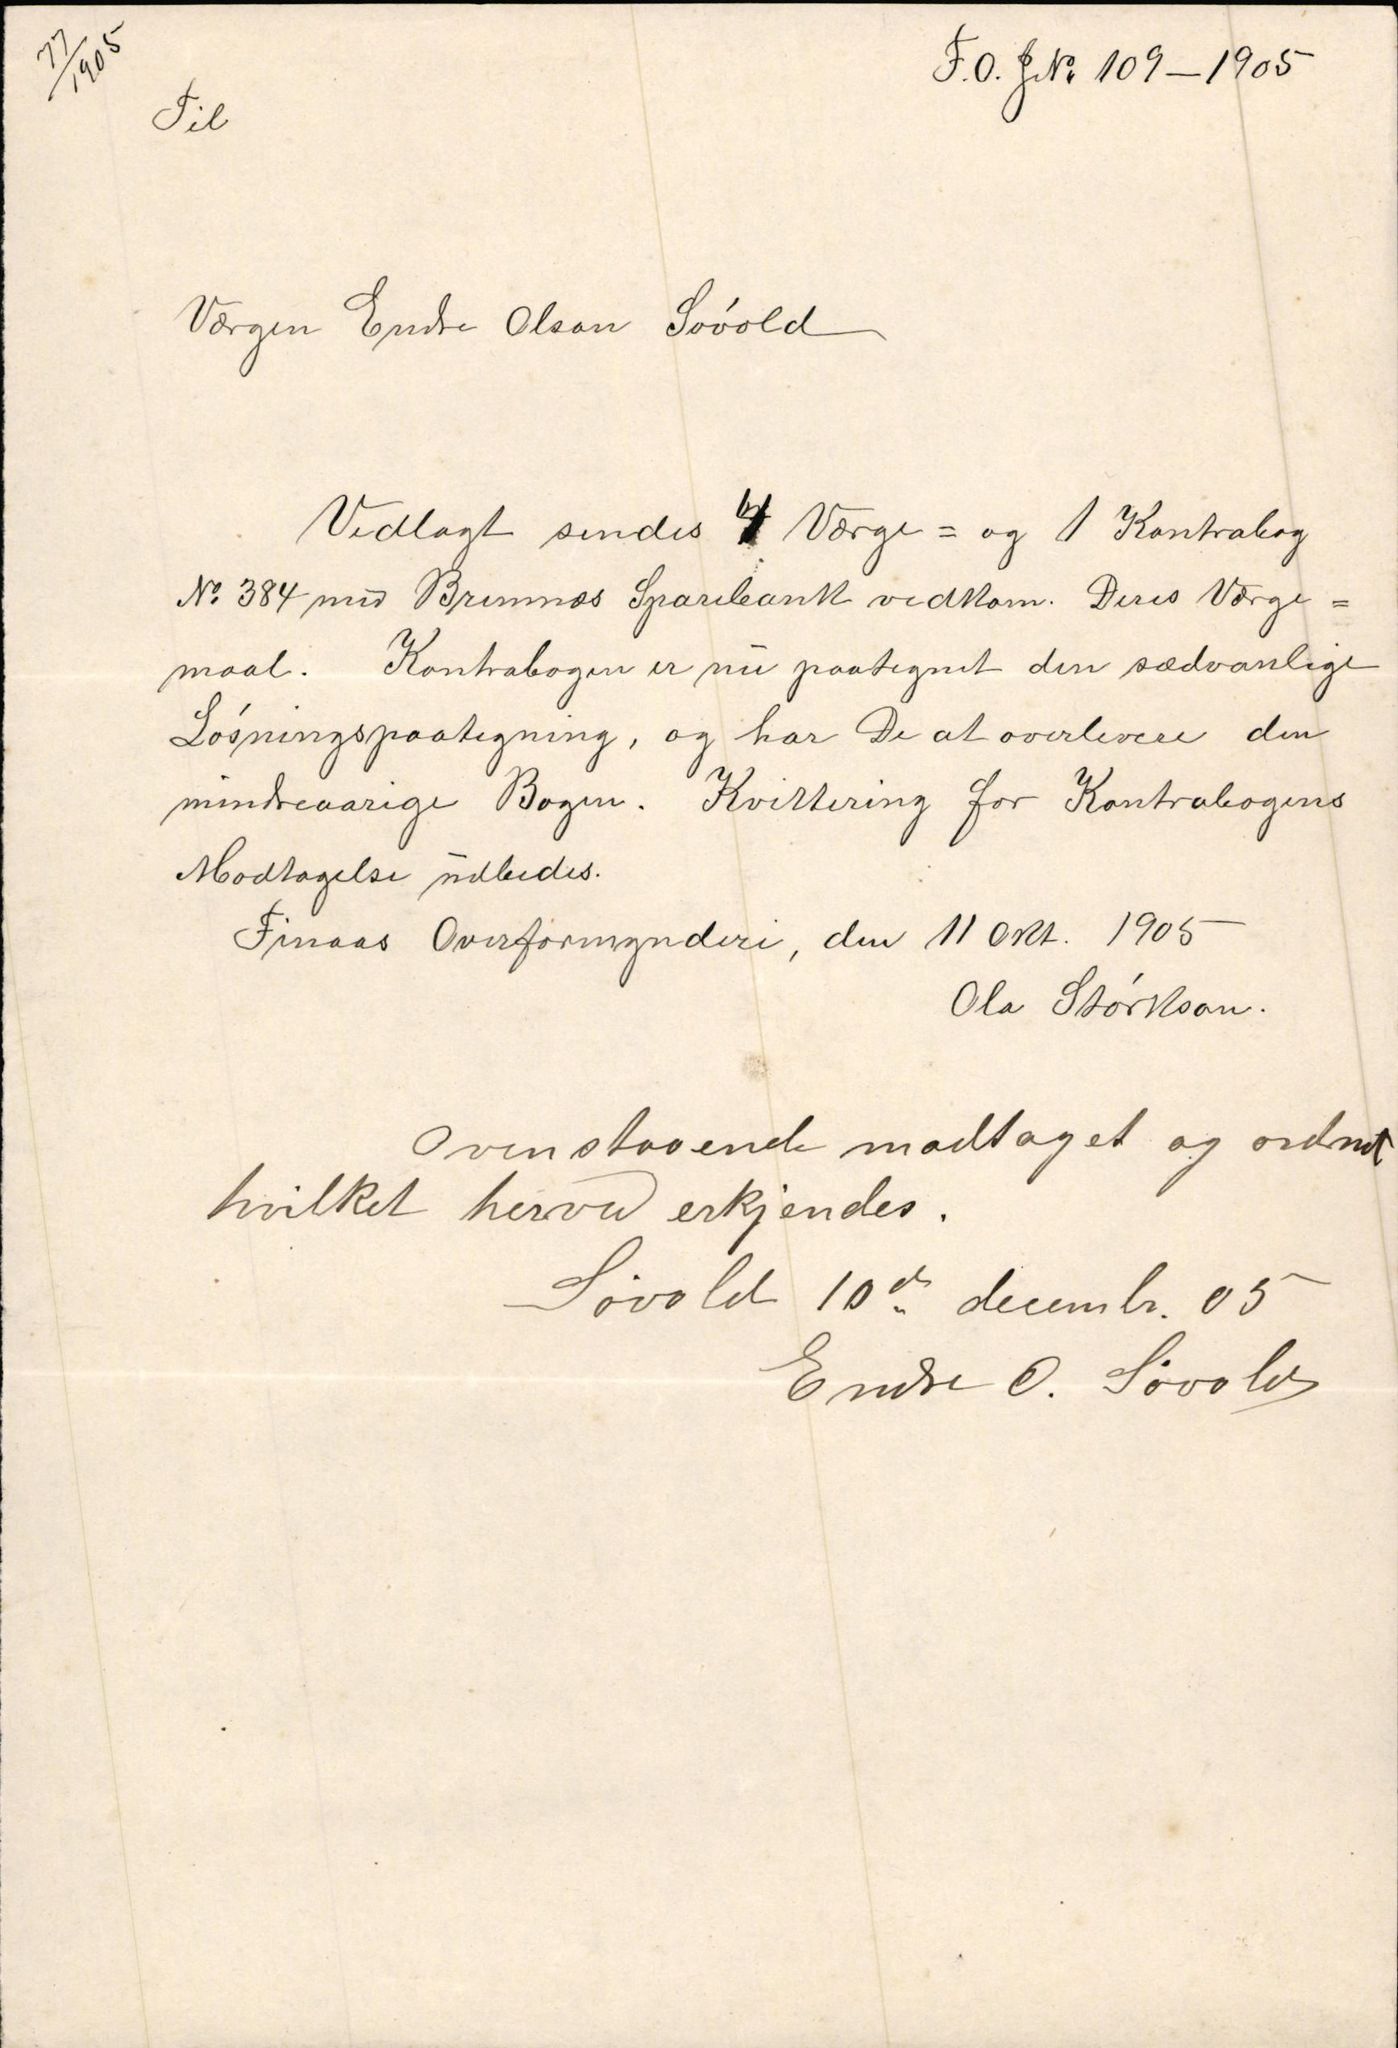 77/1905
F.O. J.No. 109 – 1905
Til
Værgen Endre Olson Sóvold
Vedlagt sendes 4 Værge = og 1 Kontrabog
No. 384 med Bremnæs Sparebank vedkom. Deres Værge =
maal. Kontrabogen er nu paategnet den sædvanlige
Lósningspaategning, og har De at overlevere den
mindreaarige Bogen. Kvittering for Kontrabogens
Modtagelse udbedes.
Finaas Overformynderi, den 11 Okt. 1905
Ola Stórkson.
Ovenstaaende modtaget og ordnet
hvilket herved erkjendes.
Sövold 10de decembr. 05
Endre O. Sövold